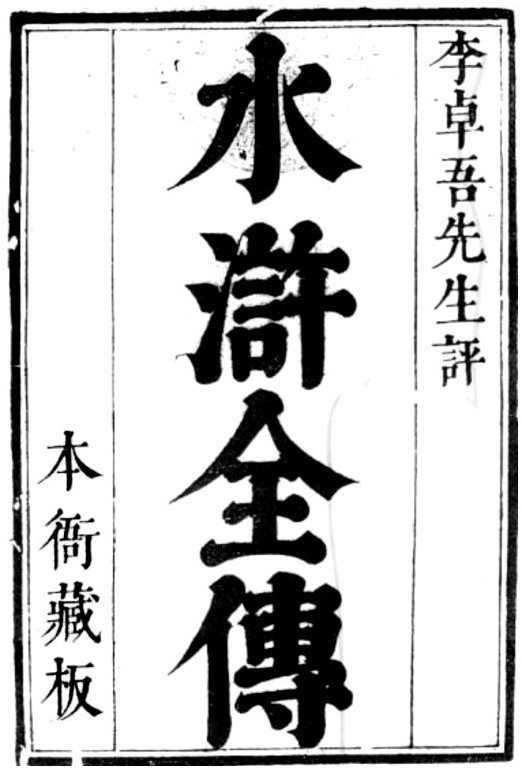 李卓吾先生評
水滸全傳
本衙藏板